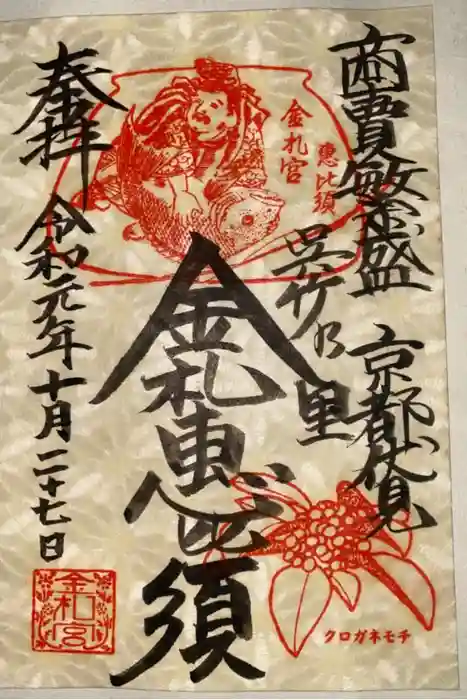 商賣繁盛 京都伏見
呉竹乃里
恵比須
金札宮
金札恵比須
奉拝
令和元年十月二十七日
金札宮
クロガネモチ